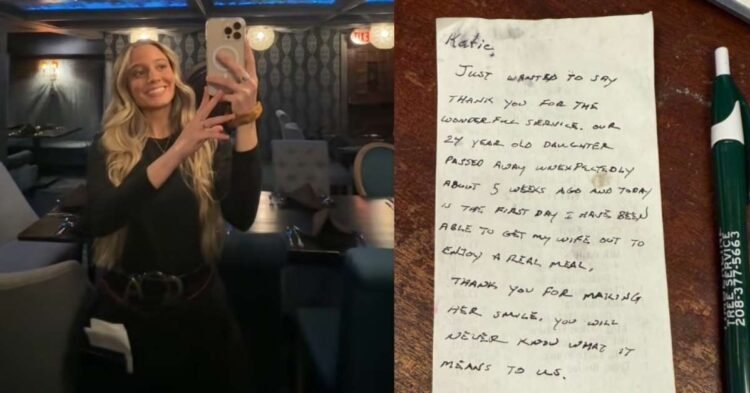 Katie,
JUST WANTED TO SAY
THANK YOU FOR THE
WONDERFUL SERVICE. OUR
24 YEAR OLD DAUGHTER
PASSED AWAY UNEXPECTEDLY
ABOUT 5 WEEKS AGO AND TODAY
IS THE FIRST DAY I HAVE BEEN
ABLE TO GET MY WIFE OUT TO
ENJOY A REAL MEAL.
THANK YOU FOR MAKING
HER SMILE. YOU WILL
NEVER KNOW WHAT IT
MEANS TO US.
TREE SERVICE
208-377-5663